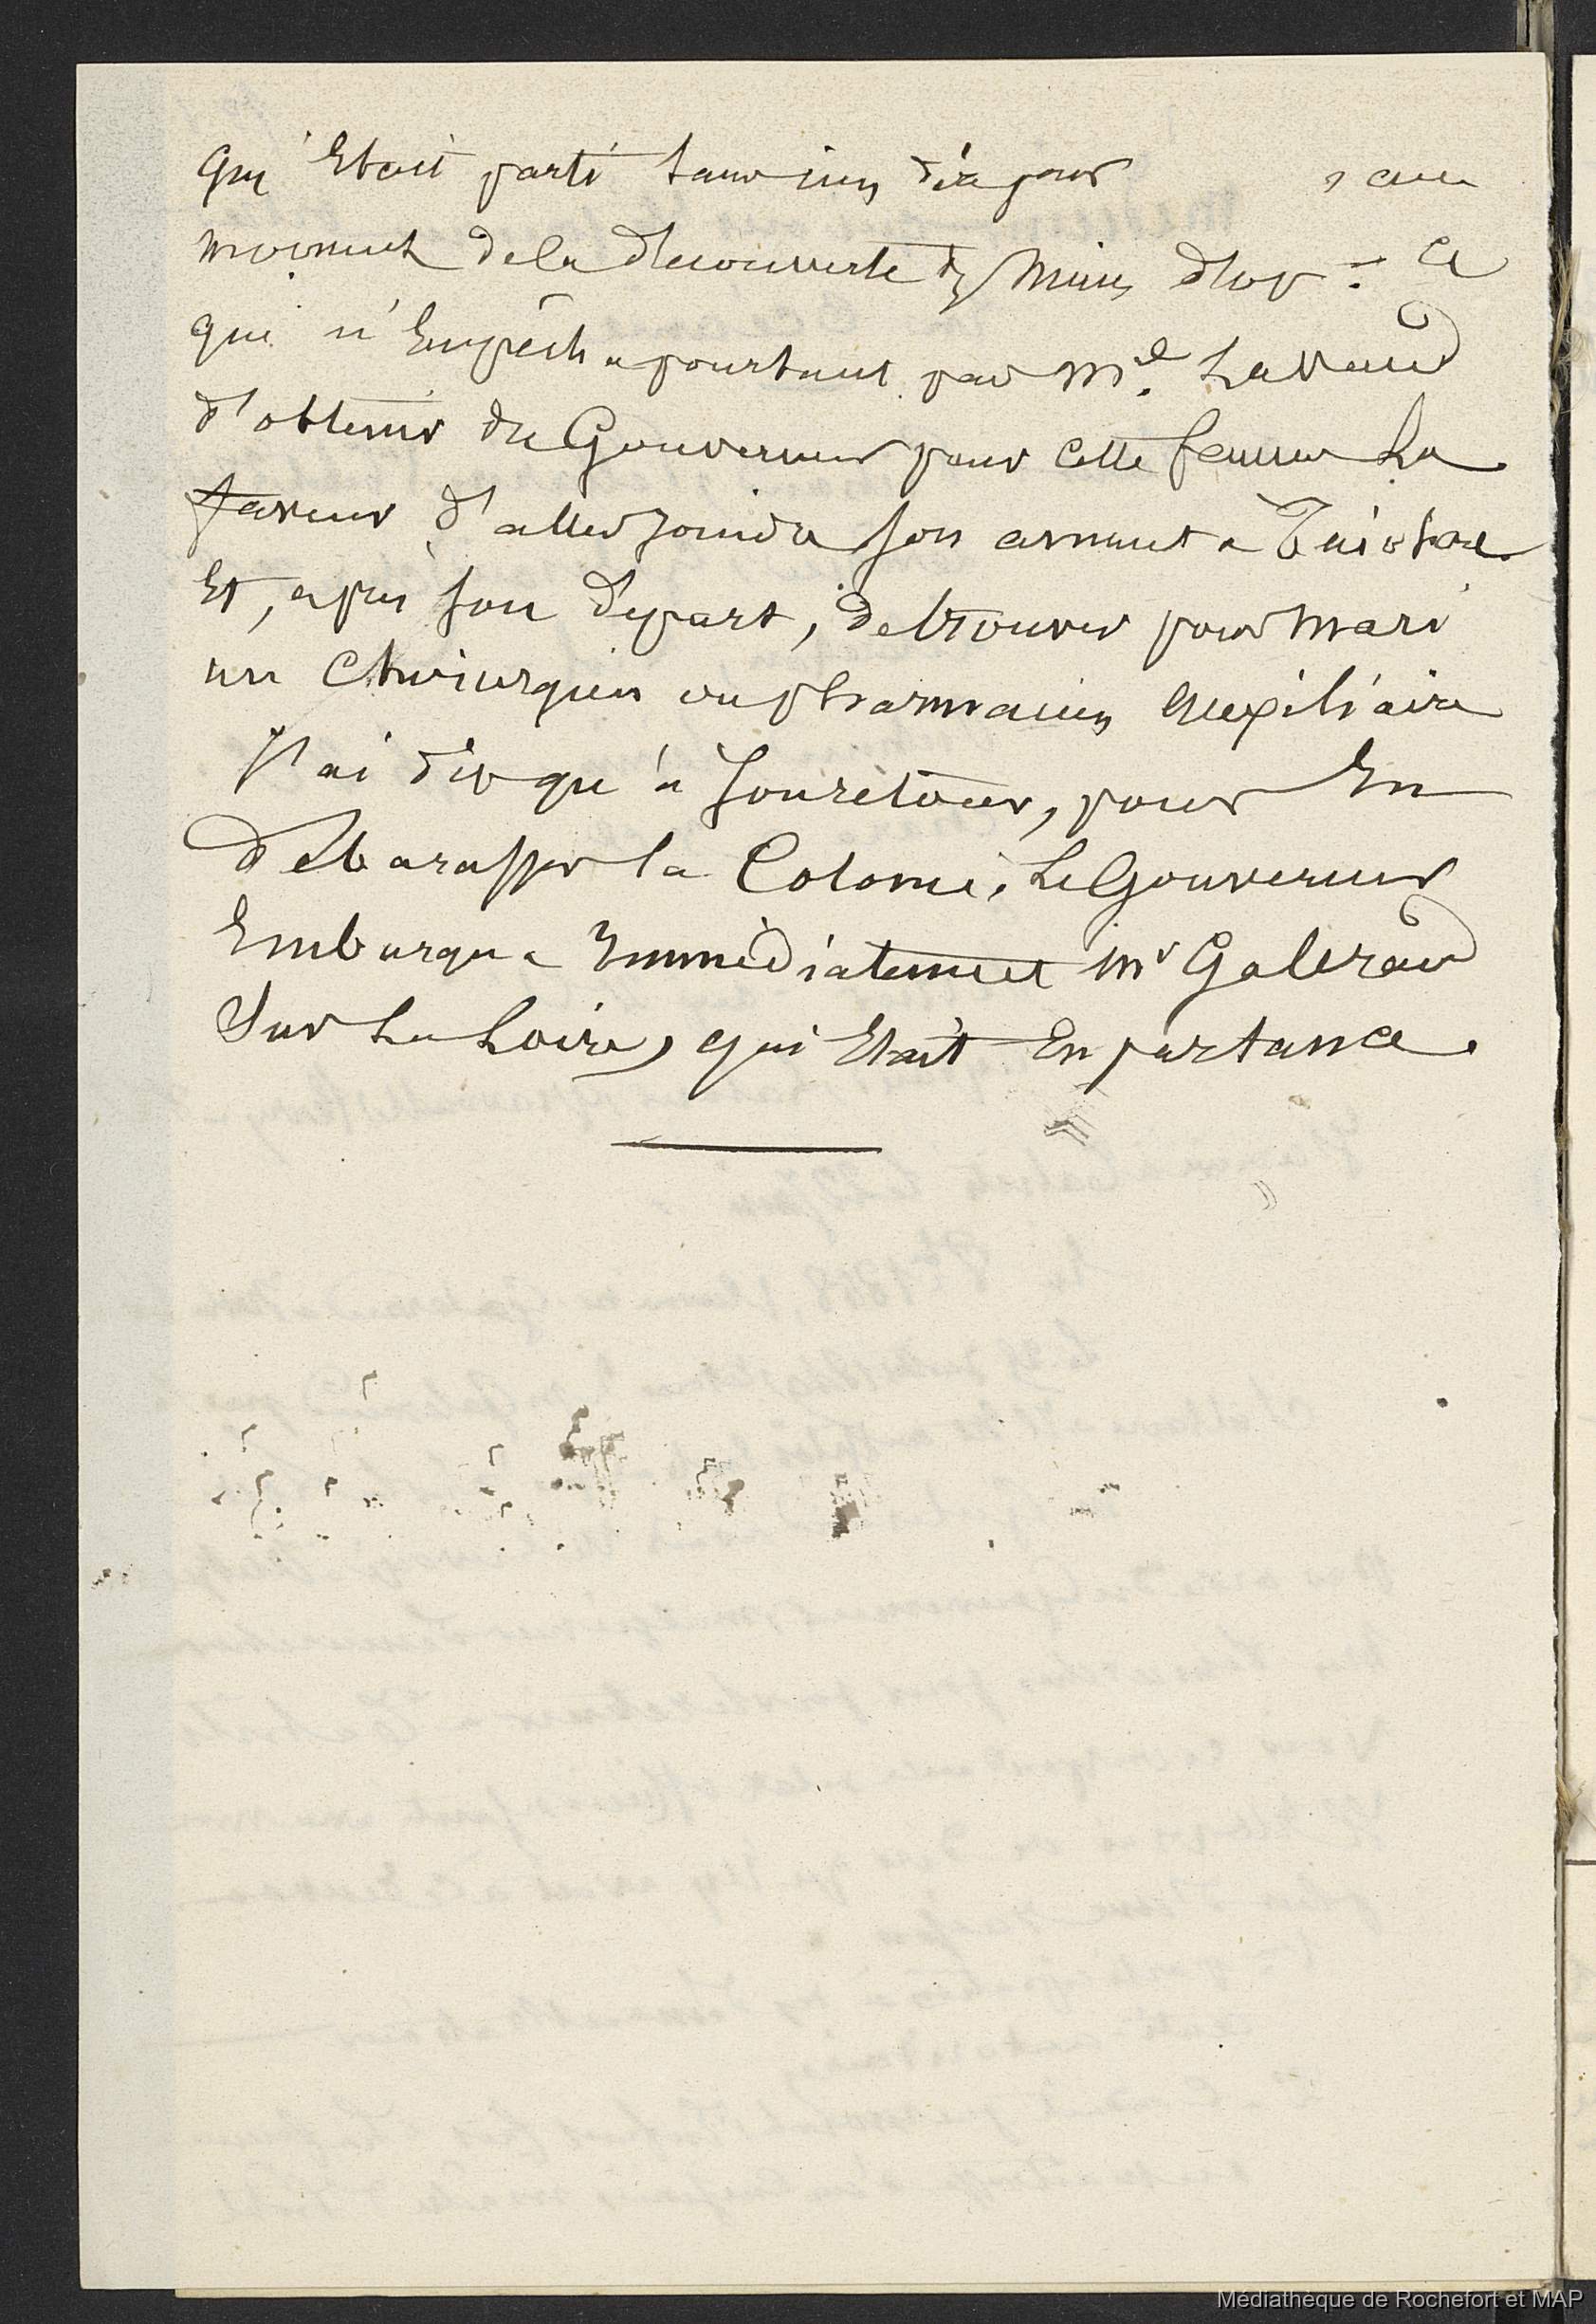 qui Etait parti sans rien dire pour , au
moment de la decouverte des Mines d'or : Ce
qui n'Empêcha pourtant pas Mel. Lavaud
d'obtenir du Gouverneur pour cette femme La
faveur d'aller joindre son amant a
Et, après son départ, de trouver pour mari
un Chirurgien ou pharmacien auxiliaire
J'ai dit qu'a son retour, pour En
débarasser la Colonie, Le Gouverneur
Embarqua Immédiatement Mr Galeraud
Sur La Loire, qui Etait En partance.
Médiathèque de Rochefort et MAP